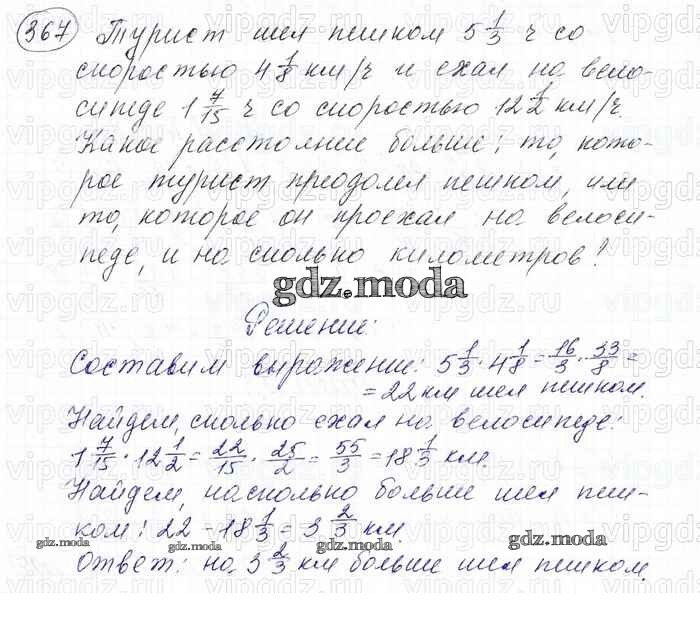 367 Турист шел пешком 5 1/3 ч со
скоростью 4 1/8 км/ч и ехал на вело-
сипеде 1 7/15 ч со скоростью 12 1/2 км/ч.
Какое расстояние больше: то, кото-
рое турист преодолел пешком, или
то, которое он проехал на велоси-
педе, и на сколько километров?
gdz.moda
Решение:
Составим выражение: 5 1/3 · 4 1/8 = 16/3 · 33/8 =
= 22 км шел пешком.
Найдем, сколько ехал на велосипеде:
1 7/15 · 12 1/2 = 22/15 · 25/2 = 55/3 = 18 1/3 км.
Найдем, насколько больше шел пеш-
ком: 22 - 18 1/3 = 3 2/3 км.
Ответ: на 3 2/3 км больше шел пешком.
gdz.moda
gdz.moda
gdz.moda
vipgdz.ru